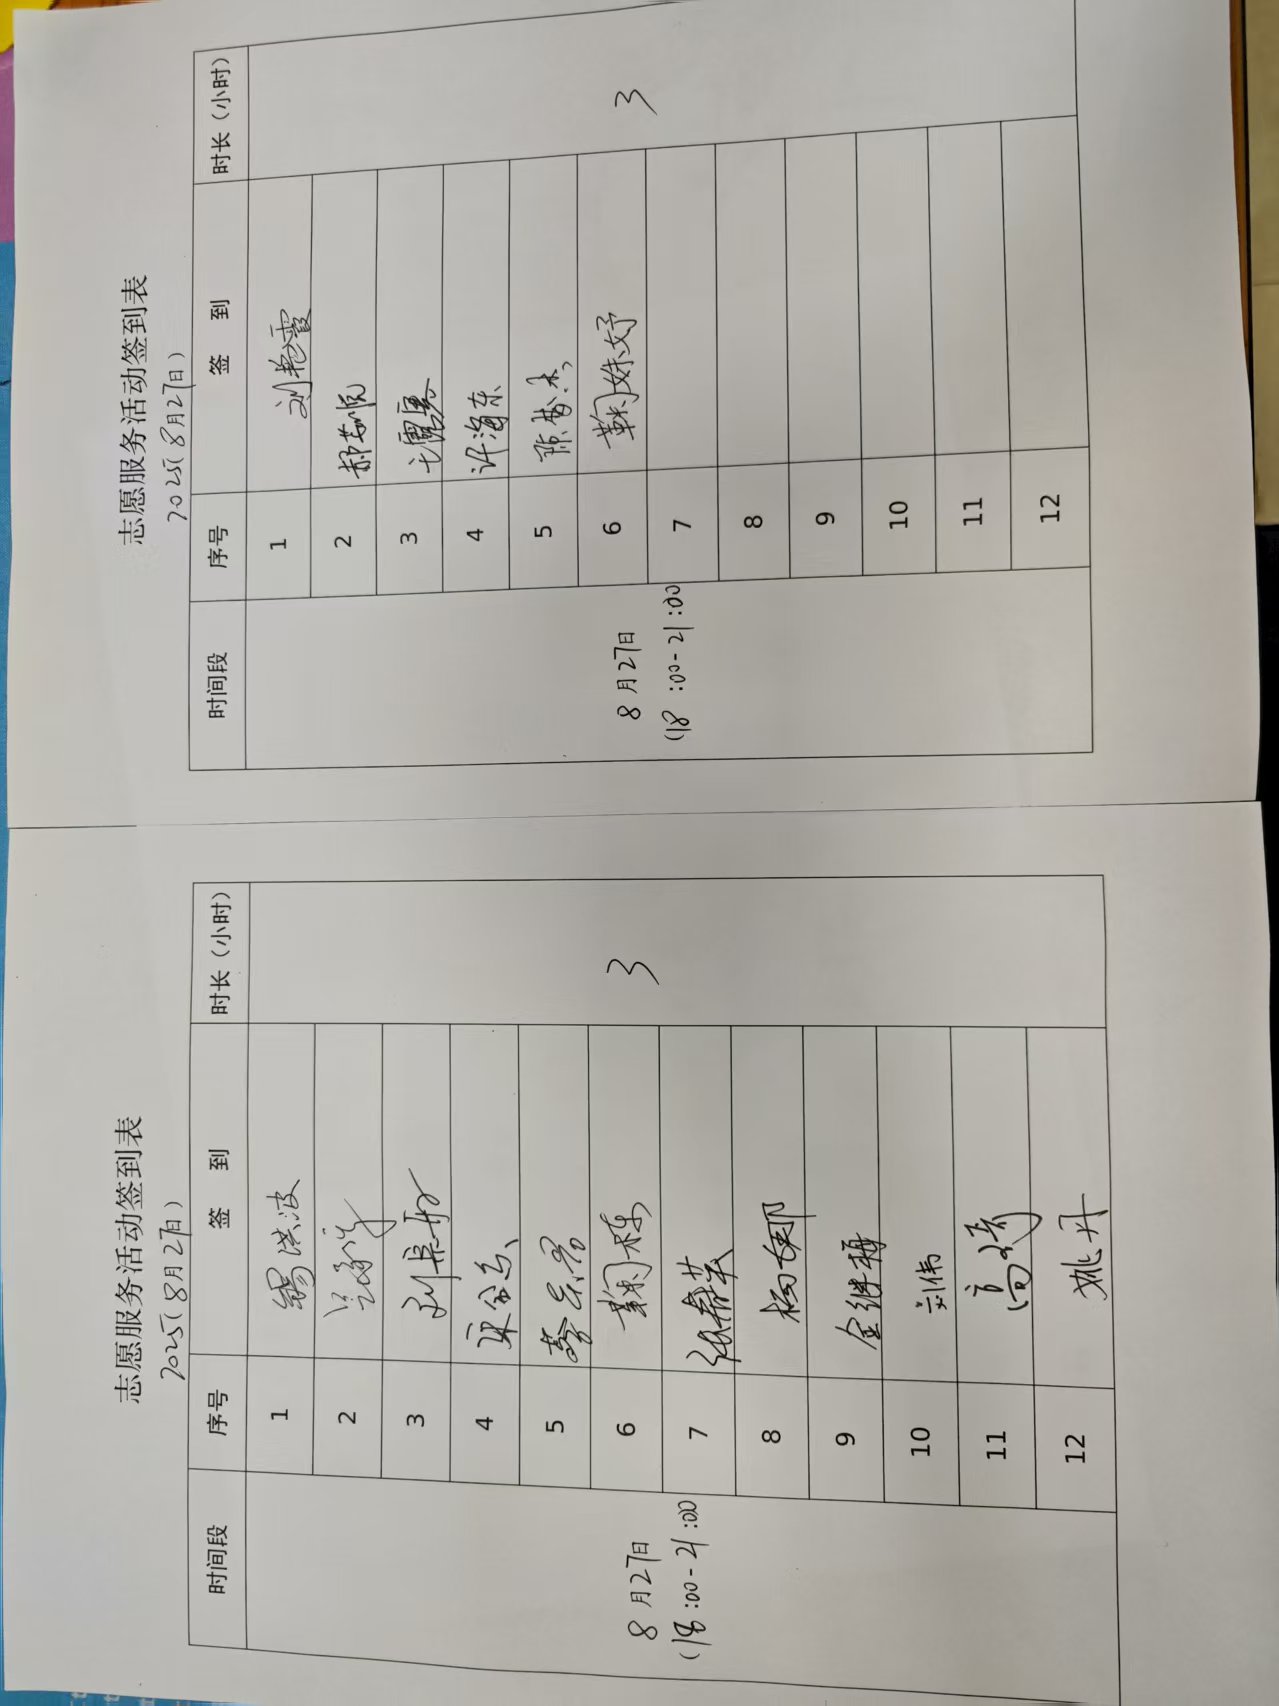 志愿服务活动签到表
2025(8月27日)
时间段 序号 签 到 时长（小时）
8月27日
(18:00-21:00
3
1 刘艳霞
2
3
4 许海东
5
6 鞠姝妤
7
8
9
10
11
12
志愿服务活动签到表
2025(8月27日)
时间段 序号 签 到 时长（小时）
8月27日
(18:00-21:00
3
1 洪波
2
3
4
5
6 鞠栋
7
8 杨娜
9 金继梅
10 刘伟
11 高琦
12 姚丹